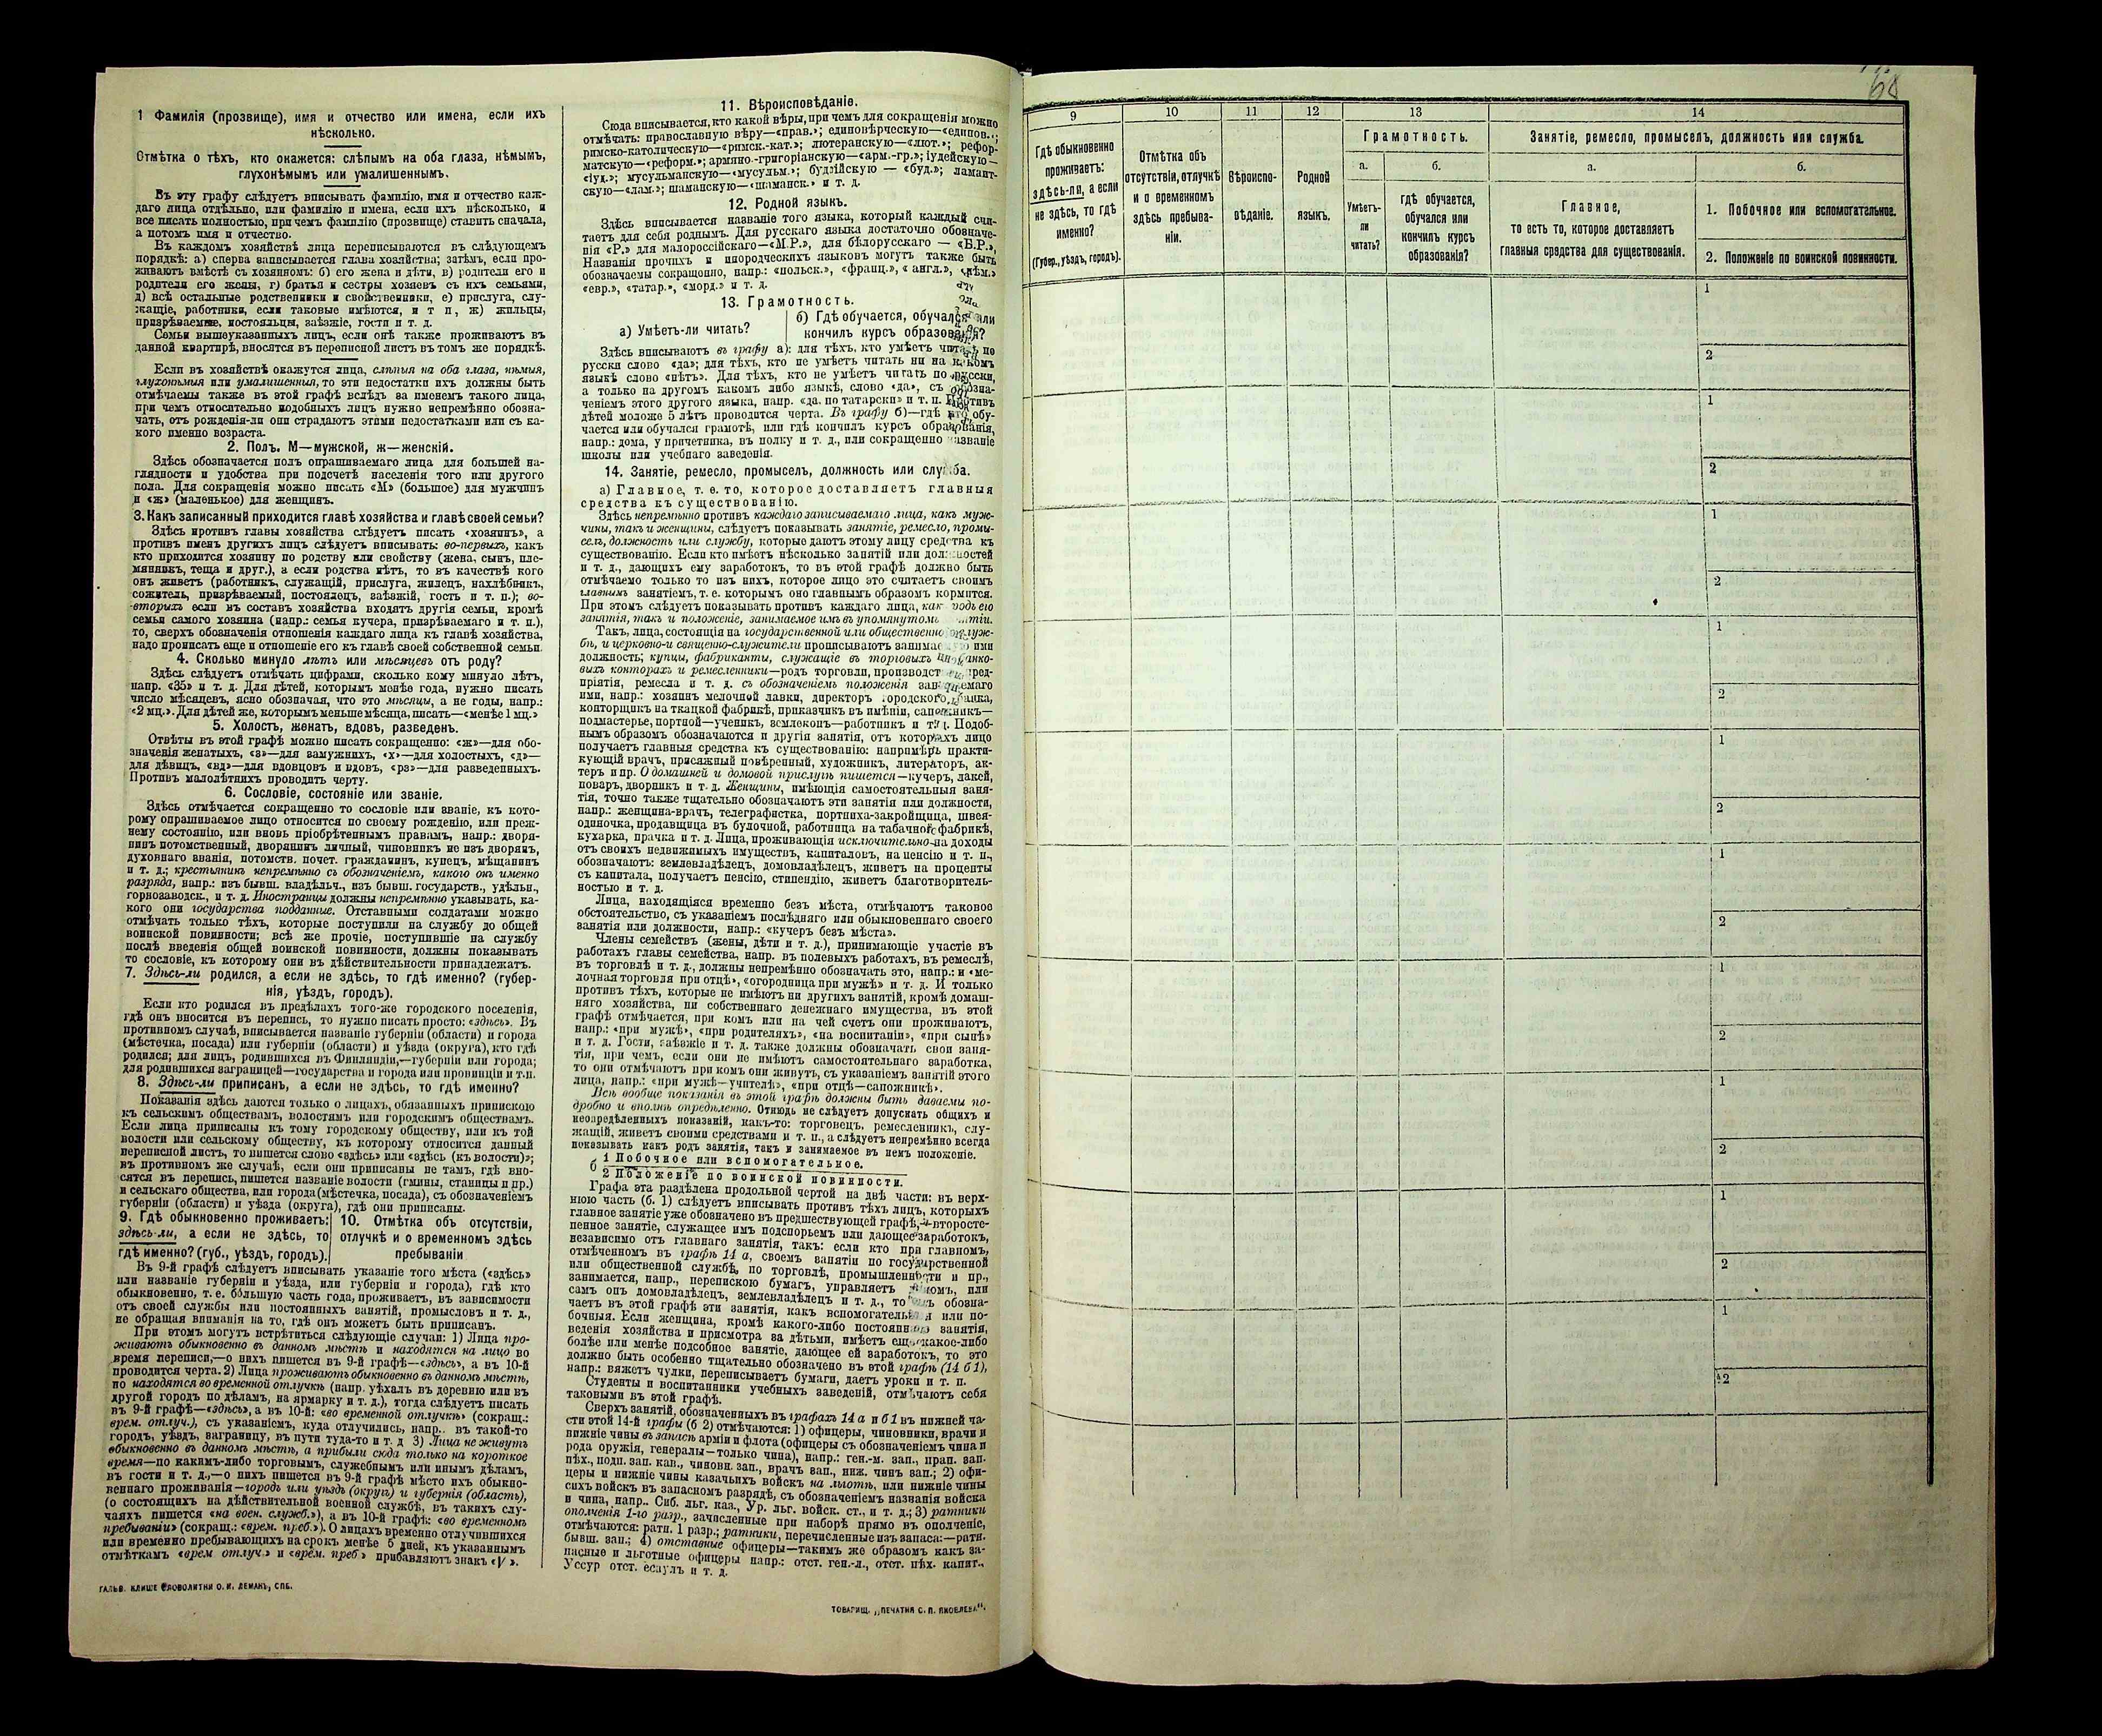 1 Фамилія (прозвище), имя и отчество или имена, если ихъ
нѣсколько.
Отмѣтка о тѣхъ, кто окажется: слѣпымъ на оба глаза, нѣмымъ,
глухонѣмымъ или умалишеннымъ.
Въ эту графу слѣдуетъ вписывать фамилію, имя и отчество каж-
даго лица отдѣльно, или фамилію и имена, если ихъ нѣсколько, и
все писать полностью, при чемъ фамилію (прозвище) ставить сначала,
а потомъ имя и отчество.
Въ каждомъ хозяйствѣ лица переписываются въ слѣдующемъ
порядкѣ: а) сперва записывается глава хозяйства; затѣмъ, если про-
живаютъ вмѣстѣ съ хозяиномъ: б) его жена и дѣти, в) родители его и
родители его жены, г) братья и сестры хозяевъ съ ихъ семьями,
д) всѣ остальные родственники и свойственники, е) прислуга, слу-
жащіе, работники, если таковые имѣются, и т п, ж) жильцы,
призрѣваемые, постояльцы, заѣзжіе, гости и т. д.
Семьи вышеуказанныхъ лицъ, если онѣ также проживаютъ въ
данной квартирѣ, вносятся въ переписной листъ въ томъ же порядкѣ.
Если въ хозяйствѣ окажутся лица, слѣпыя на оба глаза, нѣмыя,
глухонѣмыя или умалишенныя, то эти недостатки ихъ должны быть
отмѣчаемы также въ этой графѣ вслѣдъ за именемъ такого лица,
при чемъ относительно подобныхъ лицъ нужно непремѣнно обозна-
чать, отъ рожденія-ли они страдаютъ этими недостатками или съ ка-
кого именно возраста.
2. Полъ. М—мужской, ж—женскій.
Здѣсь обозначается полъ опрашиваемаго лица для большей на-
глядности и удобства при подсчетѣ населенія того или другого
пола. Для сокращенія можно писать «М» (большое) для мужчинъ
и «ж» (маленькое) для женщинъ.
3. Какъ записанный приходится главѣ хозяйства и главѣ своей семьи?
Здѣсь противъ главы хозяйства слѣдуетъ писать «хозяинъ», а
противъ именъ другихъ лицъ слѣдуетъ вписывать: во-первыхъ, какъ
кто приходится хозяину по родству или свойству (жена, сынъ, пле-
мянникъ, теща и друг.), а если родства нѣтъ, то въ качествѣ кого
онъ живетъ (работникъ, служащій, прислуга, жилецъ, нахлѣбникъ,
сожитель, призрѣваемый, постоялецъ, заѣзжій, гость и т. п.); во-
-вторыхъ если въ составъ хозяйства входятъ другія семьи, кромѣ
семьи самого хозяина (напр.: семья кучера, призрѣваемаго и т. п.),
то, сверхъ обозначенія отношенія каждаго лица къ главѣ хозяйства,
надо прописать еще и отношеніе его къ главѣ своей собственной семьи.
4. Сколько минуло лѣтъ или мѣсяцевъ отъ роду?
Здѣсь слѣдуетъ отмѣчать цифрами, сколько кому минуло лѣтъ,
напр. «35» и т. д. Для дѣтей, которымъ менѣе года, нужно писать
число мѣсяцевъ, ясно обозначая, что это мѣсяцы, а не годы, напр.:
«2 мц.». Для дѣтей же, которымъ меньше мѣсяца, писать—«менѣе 1 мц.»
5. Холостъ, женатъ, вдовъ, разведенъ.
Отвѣты въ этой графѣ можно писать сокращенно: «ж»—для обо-
значенія женатыхъ, «з»—для замужнихъ, «х»—для холостыхъ, «д»—
для дѣвицъ, «вд»—для вдовцовъ и вдовъ, «рз»—для разведенныхъ.
Противъ малолѣтнихъ проводить черту.
6. Сословіе, состояніе или званіе.
Здѣсь отмѣчается сокращенно то сословіе или званіе, къ кото-
рому опрашиваемое лицо относится по своему рожденію, или преж-
нему состоянію, или вновь пріобрѣтеннымъ правамъ, напр.: дворя-
нинъ потомственный, дворянинъ личный, чиновникъ не изъ дворянъ,
духовнаго званія, потомств. почет. гражданинъ, купецъ, мѣщанинъ
и т. д.; крестьянинъ непремѣнно съ обозначеніемъ, какого онъ именно
разряда, напр.: изъ бывш. владѣльч., изъ бывш. государств., удѣльн.,
горнозаводск., и т. д. Иностранцы должны непремѣнно указывать, ка-
кого они государства подданные. Отставными солдатами можно
отмѣчать только тѣхъ, которые поступили на службу до общей
воинской повинности; всѣ же прочіе, поступившіе на службу
послѣ введенія общей воинской повинности, должны показывать
то сословіе, къ которому они въ дѣйствительности принадлежатъ.
7. Здѣсь-ли родился, а если не здѣсь, то гдѣ именно? (губер-
нія, уѣздъ, городъ).
Если кто родился въ предѣлахъ того-же городского поселенія,
гдѣ онъ вносится въ перепись, то нужно писать просто: «здѣсь». Въ
противномъ случаѣ, вписывается названіе губерніи (области) и города
(мѣстечка, посада) или губерніи (области) и уѣзда (округа), кто гдѣ
родился; для лицъ, родившихся въ Финляндіи,—губерніи или города;
для родившихся заграницей—государства и города или провинціи и т.п.
8. Здѣсь-ли приписанъ, а если не здѣсь, то гдѣ именно?
Показанія здѣсь даются только о лицахъ, обязанныхъ припискою
къ сельскимъ обществамъ, волостямъ или городскимъ обществамъ.
Если лица приписаны къ тому городскому обществу, или къ той
волости или сельскому обществу, къ которому относится данный
переписной листъ, то пишется слово «здѣсь» или «здѣсь (къ волости)»;
въ противномъ же случаѣ, если они приписаны не тамъ, гдѣ вно-
сятся въ перепись, пишется названіе волости (гмины, станицы и пр.)
и сельскаго общества, или города (мѣстечка, посада), съ обозначеніемъ
губерніи (области) и уѣзда (округа), гдѣ они приписаны.
9. Гдѣ обыкновенно проживаетъ:
здѣсь-ли, а если не здѣсь, то
гдѣ именно? (губ., уѣздъ, городъ).
10. Отмѣтка объ отсутствіи,
отлучкѣ и о временномъ здѣсь
пребываніи
Въ 9-й графѣ слѣдуетъ вписывать указаніе того мѣста («здѣсь»
или названіе губерніи и уѣзда, или губерніи и города), гдѣ кто
обыкновенно, т. е. бо́льшую часть года, проживаетъ, въ зависимости
отъ своей службы или постоянныхъ занятій, промысловъ и т. д.,
не обращая вниманія на то, гдѣ онъ можетъ быть приписанъ.
При этомъ могутъ встрѣтиться слѣдующіе случаи: 1) Лица про-
живаютъ обыкновенно въ данномъ мѣстѣ и находятся на лицо во
время переписи,—о нихъ пишется въ 9-й графѣ—«здѣсь», а въ 10-й
проводится черта. 2) Лица проживаютъ обыкновенно въ данномъ мѣстѣ,
но находятся во временной отлучкѣ (напр. уѣхалъ въ деревню или въ
другой городъ по дѣламъ, на ярмарку и т. д.), тогда слѣдуетъ писать
въ 9-й графѣ—«здѣсь», а въ 10-й: «во временной отлучкѣ» (сокращ.:
врем. отлуч.), съ указаніемъ, куда отлучились, напр.. въ такой-то
городъ, уѣздъ, заграницу, въ пути туда-то и т. д 3) Лица не живутъ
обыкновенно въ данномъ мѣстѣ, а прибыли сюда только на короткое
время—по какимъ-либо торговымъ, служебнымъ или инымъ дѣламъ,
въ гости и т. д.,—о нихъ пишется въ 9-й графѣ мѣсто ихъ обыкно-
веннаго проживанія—городъ или уѣздъ (округъ) и губернія (область),
(о состоящихъ на дѣйствительной военной службѣ, въ такихъ слу-
чаяхъ пишется «на воен. служб.»), а въ 10-й графѣ: «во временномъ
пребываніи» (сокращ.: «врем. преб.»). О лицахъ временно отлучившихся
или временно пребывающихъ на срокъ менѣе 5 дней, къ указаннымъ
отмѣткамъ «врем отлуч.» и «врем. преб» прибавляютъ знакъ «V».
ГАЛЬВ. КЛИШЕ СЛОВОЛИТНИ О. И. ЛЕМАНЪ, СПБ.
11. Вѣроисповѣданіе.
Сюда вписывается, кто какой вѣры, при чемъ для сокращенія можно
отмѣчать: православную вѣру—«прав.»; единовѣрческую—«единов.»;
римско-католическую—«римск.-кат.»; лютеранскую—«лют.»; рефор-
матскую—«реформ.»; армяно-григоріанскую—«арм.-гр.»; іудейскую—
«іуд.»; мусульманскую—«мусульм.»; буддійскую — «буд.»; ламаит-
скую—«лам.»; шаманскую—«шаманск.» и т. д.
12. Родной языкъ.
Здѣсь вписывается названіе того языка, который каждый счи-
таетъ для себя роднымъ. Для русскаго языка достаточно обозначе-
нія «Р.» для малороссійскаго—«М.Р.», для бѣлорусскаго — «Б.Р.»,
Названія прочихъ и инородческихъ языковъ могутъ также быть
обозначаемы сокращенно, напр.: «польск.», «франц.», «англ.», «нѣм.»
«евр.», «татар.», «морд.» и т. д.
13. Грамотность.
а) Умѣетъ-ли читать?
б) Гдѣ обучается, обучался или
кончилъ курсъ образованія?
Здѣсь вписываютъ въ графу а): для тѣхъ, кто умѣетъ читать по
русски слово «да»; для тѣхъ, кто не умѣетъ читать ни на какомъ
языкѣ слово «нѣтъ». Для тѣхъ, кто не умѣетъ читать по русски,
а только на другомъ какомъ либо языкѣ, слово «да», съ обозна-
ченіемъ этого другого языка, напр. «да, по татарски» и т. п. Противъ
дѣтей моложе 5 лѣтъ проводится черта. Въ графу б)—гдѣ кто обу-
чается или обучался грамотѣ, или гдѣ кончилъ курсъ образованія,
напр.: дома, у причетника, въ полку и т. д., или сокращенно названіе
школы или учебнаго заведенія.
14. Занятіе, ремесло, промыселъ, должность или служба.
а) Главное, т. е. то, которое доставляетъ главныя
средства къ существованію.
Здѣсь непремѣнно противъ каждаго записываемаго лица, какъ муж-
чины, такъ и женщины, слѣдуетъ показывать занятіе, ремесло, промы-
селъ, должность или службу, которые даютъ этому лицу средства къ
существованію. Если кто имѣетъ нѣсколько занятій или должностей
и т. д., дающихъ ему заработокъ, то въ этой графѣ должно быть
отмѣчаемо только то изъ нихъ, которое лицо это считаетъ своимъ
главнымъ занятіемъ, т. е. которымъ оно главнымъ образомъ кормится.
При этомъ слѣдуетъ показывать противъ каждаго лица, какъ родъ его
занятія, такъ и положеніе, занимаемое имъ въ упомянутомъ занятіи.
Такъ, лица, состоящія на государственной или общественной служ-
бѣ, и церковно-и священно-служители прописываютъ занимаемую ими
должность; купцы, фабриканты, служащіе въ торговыхъ и банко-
выхъ конторахъ и ремесленники—родъ торговли, производства, пред-
пріятія, ремесла и т. д. съ обозначеніемъ положенія занимаемаго
ими, напр.: хозяинъ мелочной лавки, директоръ городского банка,
конторщикъ на ткацкой фабрикѣ, приказчикъ въ имѣніи, сапожникъ—
подмастерье, портной—ученикъ, землекопъ—работникъ и т. д. Подоб-
нымъ образомъ обозначаются и другія занятія, отъ которыхъ лицо
получаетъ главныя средства къ существованію: напримѣръ практи-
кующій врачъ, присяжный повѣренный, художникъ, литераторъ, ак-
теръ и пр. О домашней и домовой прислугѣ пишется—кучеръ, лакей,
поваръ, дворникъ и т. д. Женщины, имѣющія самостоятельныя заня-
тія, точно также тщательно обозначаютъ эти занятія или должности,
напр.: женщина-врачъ, телеграфистка, портниха-закройщица, швея-
одиночка, продавщица въ булочной, работница на табачной фабрикѣ,
кухарка, прачка и т. д. Лица, проживающія исключительно на доходы
отъ своихъ недвижимыхъ имуществъ, капиталовъ, на пенсію и т. п.,
обозначаютъ: землевладѣлецъ, домовладѣлецъ, живетъ на проценты
съ капитала, получаетъ пенсію, стипендію, живетъ благотворитель-
ностью и т. д.
Лица, находящіяся временно безъ мѣста, отмѣчаютъ таковое
обстоятельство, съ указаніемъ послѣдняго или обыкновеннаго своего
занятія или должности, напр.: «кучеръ безъ мѣста».
Члены семействъ (жены, дѣти и т. д.), принимающіе участіе въ
работахъ главы семейства, напр. въ полевыхъ работахъ, въ ремеслѣ,
въ торговлѣ и т. д., должны непремѣнно обозначать это, напр.: и «ме-
лочная торговля при отцѣ», «огородница при мужѣ» и т. д. И только
противъ тѣхъ, которые не имѣютъ ни другихъ занятій, кромѣ домаш-
няго хозяйства, ни собственнаго денежнаго имущества, въ этой
графѣ отмѣчается, при комъ или на чей счетъ они проживаютъ,
напр.: «при мужѣ», «при родителяхъ», «на воспитаніи», «при сынѣ»
и т. д. Гости, заѣзжіе и т. д. также должны обозначать свои заня-
тія, при чемъ, если они не имѣютъ самостоятельнаго заработка,
то они отмѣчаютъ при комъ они живутъ, съ указаніемъ занятій этого
лица, напр.: «при мужѣ—учителѣ», «при отцѣ—сапожникѣ».
Всѣ вообще показанія въ этой графѣ должны быть даваемы по-
дробно и вполнѣ опредѣленно. Отнюдь не слѣдуетъ допускать общихъ и
неопредѣленныхъ показаній, какъ-то: торговецъ, ремесленникъ, слу-
жащій, живетъ своими средствами и т. п., а слѣдуетъ непремѣнно всегда
показывать какъ родъ занятія, такъ и занимаемое въ немъ положеніе.
б 1 Побочное или вспомогательное.
2 Положеніе по воинской повинности.
Графа эта раздѣлена продольной чертой на двѣ части: въ верх-
нюю часть (б. 1) слѣдуетъ вписывать противъ тѣхъ лицъ, которыхъ
главное занятіе уже обозначено въ предшествующей графѣ, и второсте-
пенное занятіе, служащее имъ подспорьемъ или дающее заработокъ,
независимо отъ главнаго занятія, такъ: если кто при главномъ,
отмѣченномъ въ графѣ 14 а, своемъ занятіи по государственной
или общественной службѣ, по торговлѣ, промышленности и пр.,
занимается, напр., перепискою бумагъ, управляетъ домомъ, или
самъ онъ домовладѣлецъ, землевладѣлецъ и т. д., то онъ обозна-
чаетъ въ этой графѣ эти занятія, какъ вспомогательныя или по-
бочныя. Если женщина, кромѣ какого-либо постояннаго занятія,
веденія хозяйства и присмотра за дѣтьми, имѣетъ еще какое-либо
болѣе или менѣе подсобное занятіе, дающее ей заработокъ, то это
должно быть особенно тщательно обозначено въ этой графѣ (14 б 1),
напр.: вяжетъ чулки, переписываетъ бумаги, даетъ уроки и т. п.
Студенты и воспитанники учебныхъ заведеній, отмѣчаютъ себя
таковыми въ этой графѣ.
Сверхъ занятій, обозначенныхъ въ графахъ 14 а и б 1 въ нижней ча-
сти этой 14-й графы (б 2) отмѣчаются: 1) офицеры, чиновники, врачи и
нижніе чины въ запасѣ арміи и флота (офицеры съ обозначеніемъ чина и
рода оружія, генералы—только чина), напр.: ген.-м. зап., прап. зап.
пѣх., подп. зап. кав., чиновн. зап., врачъ зап., ниж. чинъ зап.; 2) офи-
церы и нижніе чины казачьихъ войскъ на льготѣ, или нижніе чины
сихъ войскъ въ запасномъ разрядѣ, съ обозначеніемъ названія войска
и чина, напр.. Сиб. льг. каз., Ур. льг. войск. ст., и т. д.; 3) ратники
ополченія 1-го разр., зачисленные при наборѣ прямо въ ополченіе,
отмѣчаются: ратн. 1 разр.; ратники, перечисленные изъ запаса:—ратн.
бывш. зап.; 4) отставные офицеры—такимъ же образомъ какъ за-
пасные и льготные офицеры напр.: отст. ген.-л., отст. пѣх. капит.,
Уссур отст. есаулъ и т. д.
ТОВАРИЩ. „ПЕЧАТНЯ С. П. ЯКОВЛЕВА".
68
9
10
11
12
13
14
Гдѣ обыкновенно
проживаетъ:
здѣсь-ли, а если
не здѣсь, то гдѣ
именно?
(Губер., уѣздъ, городъ).
Отмѣтка объ
отсутствіи, отлучкѣ
и о временномъ
здѣсь пребыва-
ніи.
Вѣроиспо-
вѣданіе.
Родной
языкъ.
Грамотность.
а.
Умѣетъ-
ли
читать?
б.
гдѣ обучается,
обучался или
кончилъ курсъ
образованія?
Занятіе, ремесло, промыселъ, должность или служба.
а.
Главное,
то есть то, которое доставляетъ
главныя средства для существованія.
б.
1. Побочное или вспомогательное.
2. Положеніе по воинской повинности.
1
2
1
2
1
2
1
2
1
2
1
2
1
2
1
2
1
2
1
2